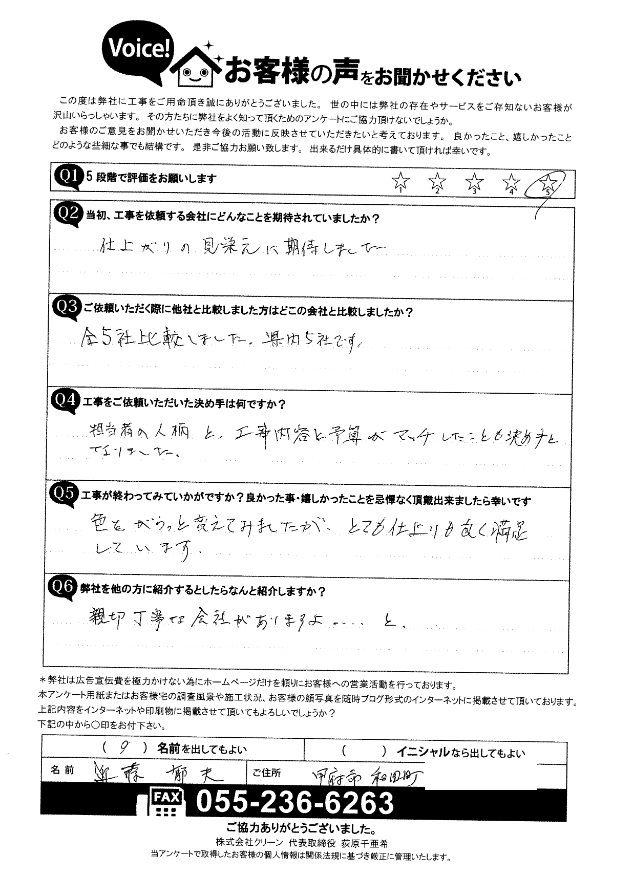 Voice!
お客様の声をお聞かせください
この度は弊社に工事をご用命頂き誠にありがとうございました。 世の中には弊社の存在やサービスをご存知ないお客様が
沢山いらっしゃいます。 その方たちに弊社をよく知って頂くためのアンケートにご協力頂けないでしょうか。
お客様のご意見をお聞かせいただき今後の活動に反映させていただきたいと考えております。 良かったこと、嬉しかったこと
どのような些細な事でも結構です。 是非ご協力お願い致します。 出来るだけ具体的に書いて頂ければ幸いです。
Q1 5段階で評価をお願いします
2 3 4 5
Q2 当初、工事を依頼する会社にどんなことを期待されていましたか?
仕上がりの見栄えに期待しました
Q3 ご依頼いただく際に他社と比較しました方はどこの会社と比較しましたか?
全5社比較しました。県内5社です。
Q4 工事をご依頼いただいた決め手は何ですか?
担当者の人柄と、工事内容と予算がマッチしたことも決め手と
なりました。
Q5 工事が終わってみていかがですか?良かった事・嬉しかったことを忌憚なく頂戴出来ましたら幸いです
色をがらっと変えてみましたが、とても仕上りも良く満足
しています。
Q6 弊社を他の方に紹介するとしたらなんと紹介しますか?
親切丁寧な会社がありますよ.... と、
*弊社は広告宣伝費を極力かけない為にホームページだけを頼りにお客様への営業活動を行っております。
本アンケート用紙またはお客様宅の調査風景や施工状況、お客様の顔写真を随時ブログ形式のインターネットに掲載させて頂いております。
上記内容をインターネットや印刷物に掲載させて頂いてもよろしいでしょうか?
下記の中から○印をお付下さい。
( ) 名前を出してもよい ( ) イニシャルなら出してもよい
名前 郁夫 ご住所 甲府市 和田町
FAX 055-236-6263
ご協力ありがとうございました。
株式会社クリーン 代表取締役 荻原千亜希
当アンケートで取得したお客様の個人情報は関係法規に基づき厳正に管理いたします。